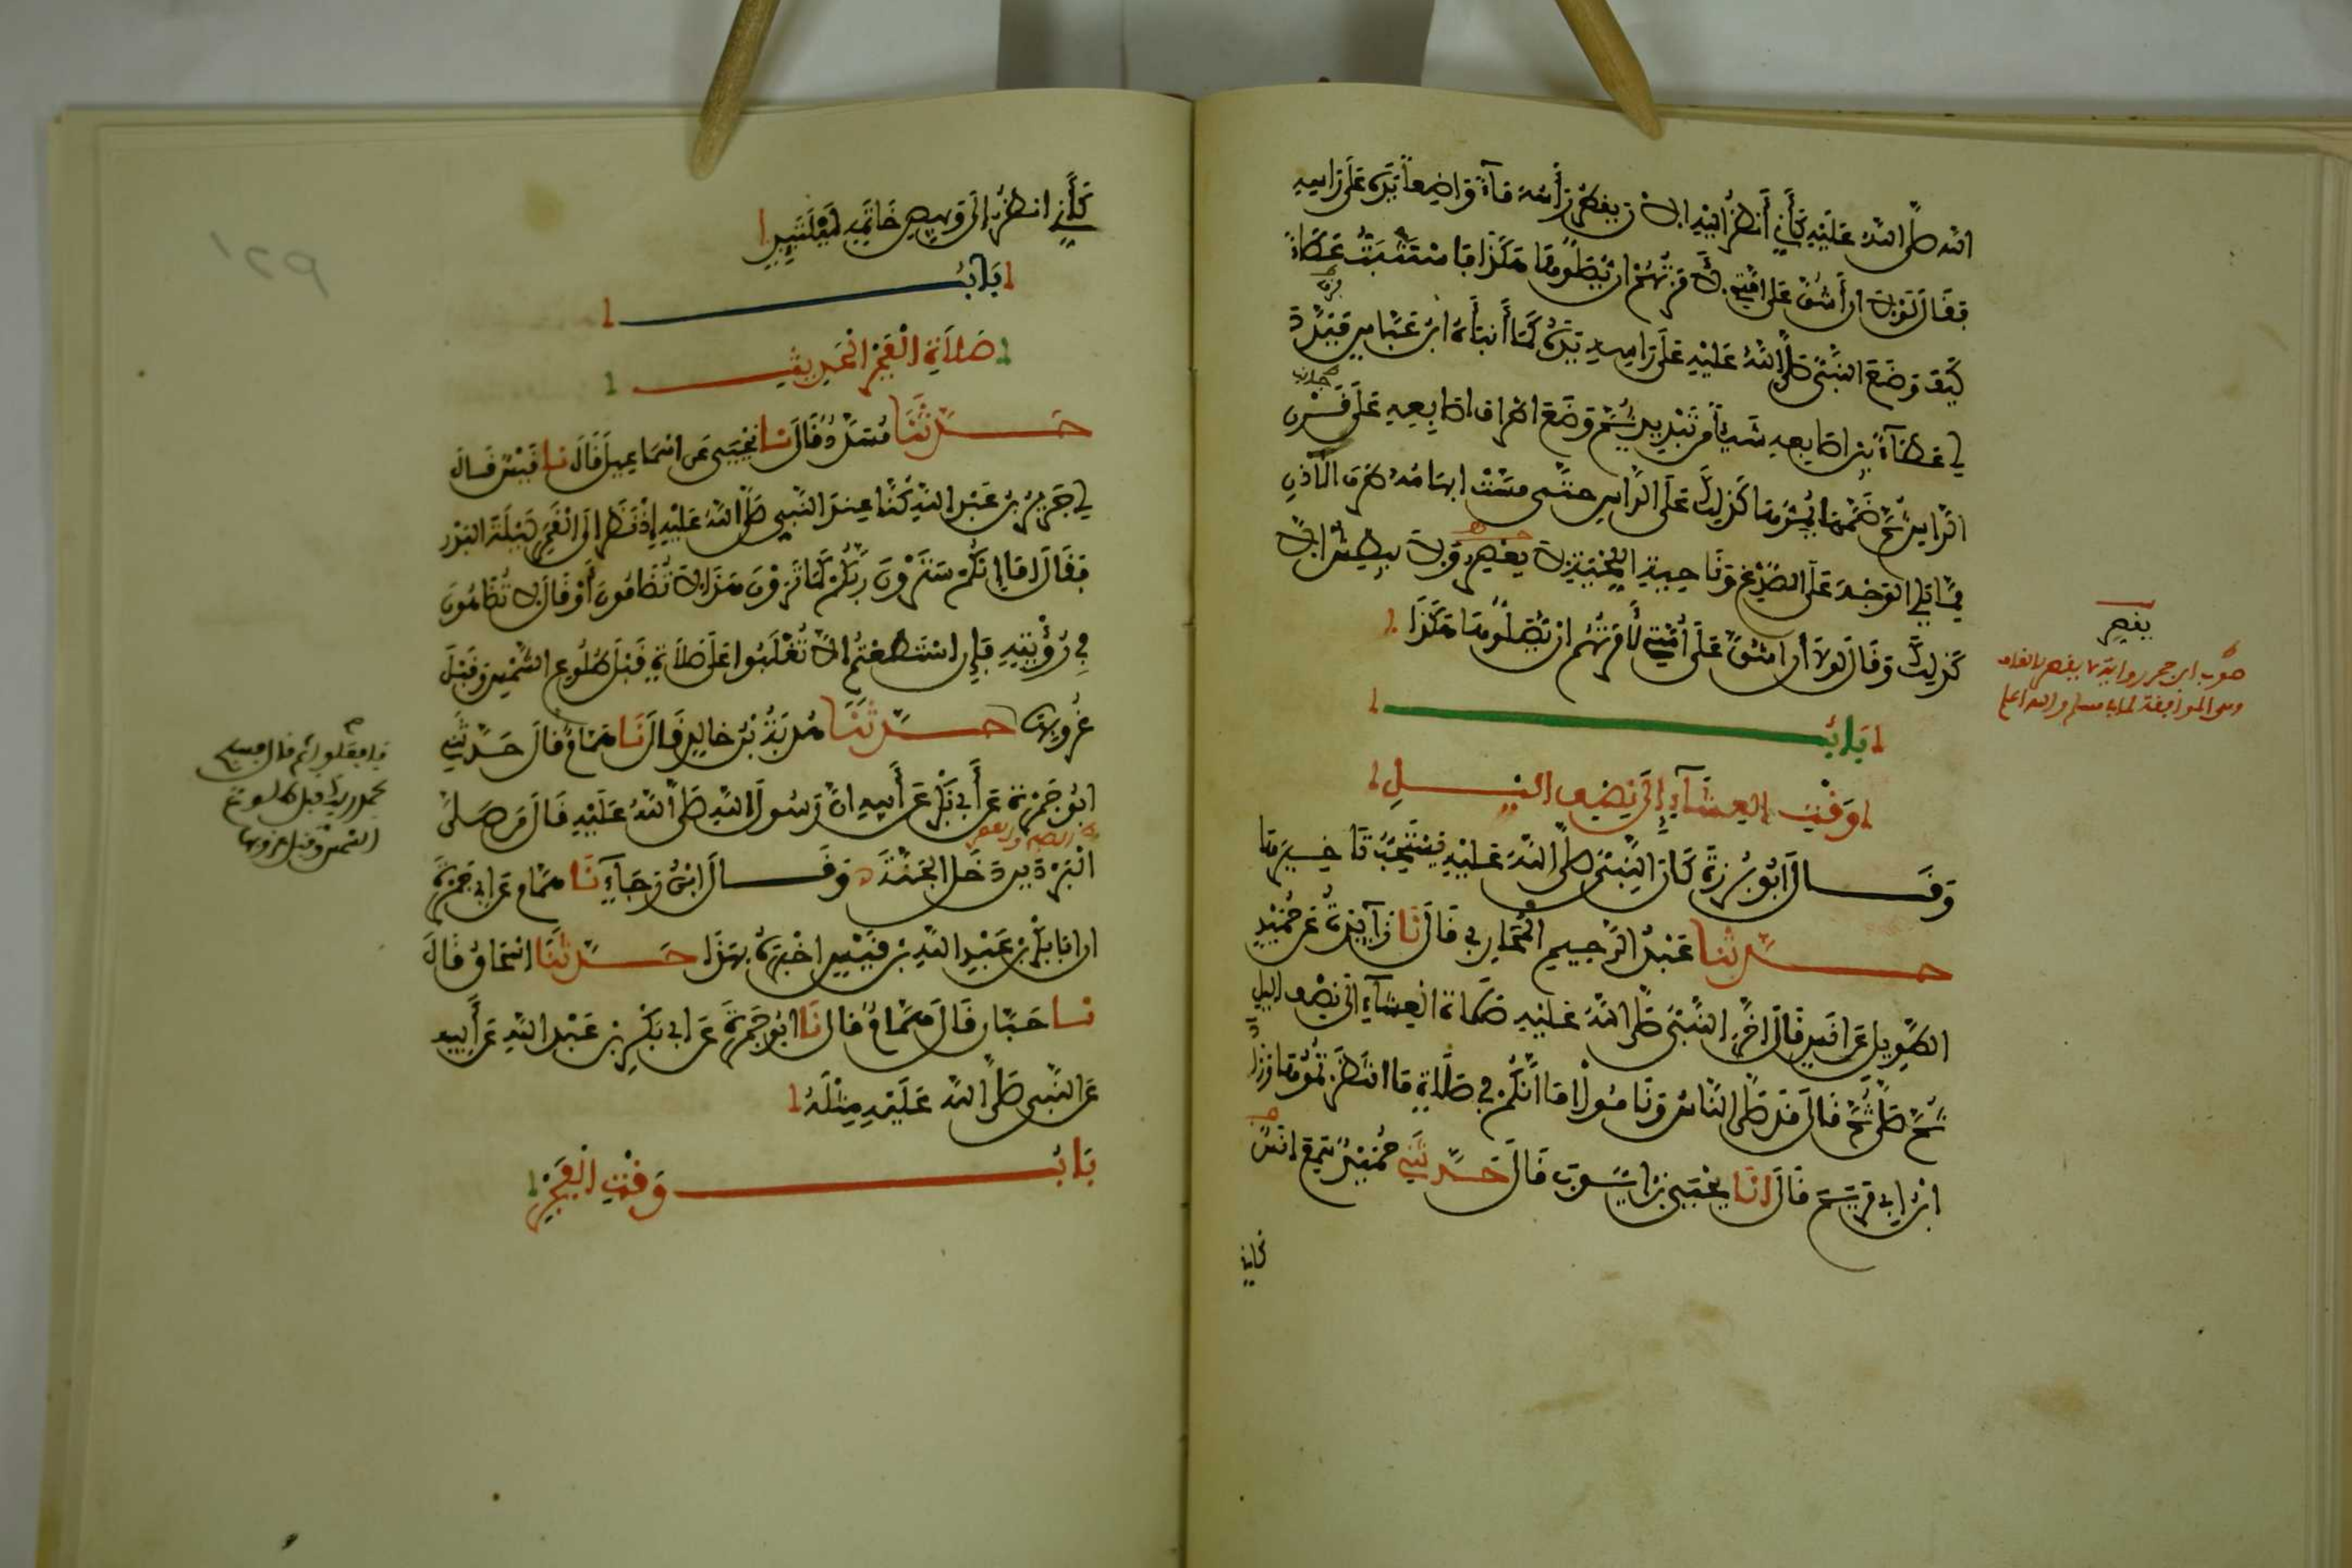 الله صلى الله عليه كأني أنظر إليه الآن يقطر رأسه ماء واضعا يده على رأسه
فقال لولا أن أشق على أمتي لأمرتهم أن يصلوها هكذا فاستثبت عطاء
كيف وضع النبي صلى الله عليه على رأسه يده كما أنبأه ابن عباس فبدد
لي عطاء بين أصابعه شيئا من تبديد ثم وضع أطراف أصابعه على قرن
الرأس ثم ضمها يمرها كذلك على الرأس حتى مست إبهامه طرف الأذن
مما يلي الوجه على الصدغ وناحية اللحية لا يعصر ولا يبطش إلا
كذلك وقال لولا أن أشق على أمتي لأمرتهم أن يصلوها هكذا
يعصر
صوب ابن حجر رواية لا يقصر بالقاف
وهي الموافقة لما في مسلم والله أعلم
باب
وقت العشاء إلى نصف الليل
وقال أبو برزة كان النبي صلى الله عليه يستحب تأخيرها
حدثنا عبد الرحيم المحاربي قال نا زائدة عن حميد
الطويل عن أنس قال أخر النبي صلى الله عليه صلاة العشاء إلى نصف الليل
ثم صلى ثم قال قد صلى الناس وناموا أما إنكم في صلاة ما انتظرتموها وزاد
ابن أبي مريم قال انا يحيى بن أيوب قال حدثني حميد سمع أنس
كأني
كأني انظر إلى وبيص خاتمه ليلتئذ
باب
صلاة الفجر الحديث
حدثنا مسدد قال نا يحيى عن اسماعيل قال نا قيس قال
لي جرير بن عبد الله كنا عند النبي صلى الله عليه إذ نظر إلى القمر ليلة البدر
فقال أما إنكم سترون ربكم كما ترون هذا لا تضامون أو قال لا تضاهون
في رؤيته فإن استطعتم ألا تغلبوا على صلاة قبل طلوع الشمس وقبل
غروبها حدثنا هدبة بن خالد قال نا همام قال حدثني
فافعلوا ثم قال فسبح
بحمد ربك قبل طلوع
الشمس وقبل غروبها
ابو جمرة عن أبي بكر عن أبيه ان رسول الله صلى الله عليه قال من صلى
البردين دخل الجنة وقال ابن رجاء نا همام عن ابي جمرة
ان ابا بكر بن عبد الله بن قيس اخبره بهذا حدثنا اسحاق قال
نا حبان قال همام قال نا ابو جمرة عن ابي بكر بن عبد الله عن أبيه
عن النبي صلى الله عليه مثله
باب وقت الفجر